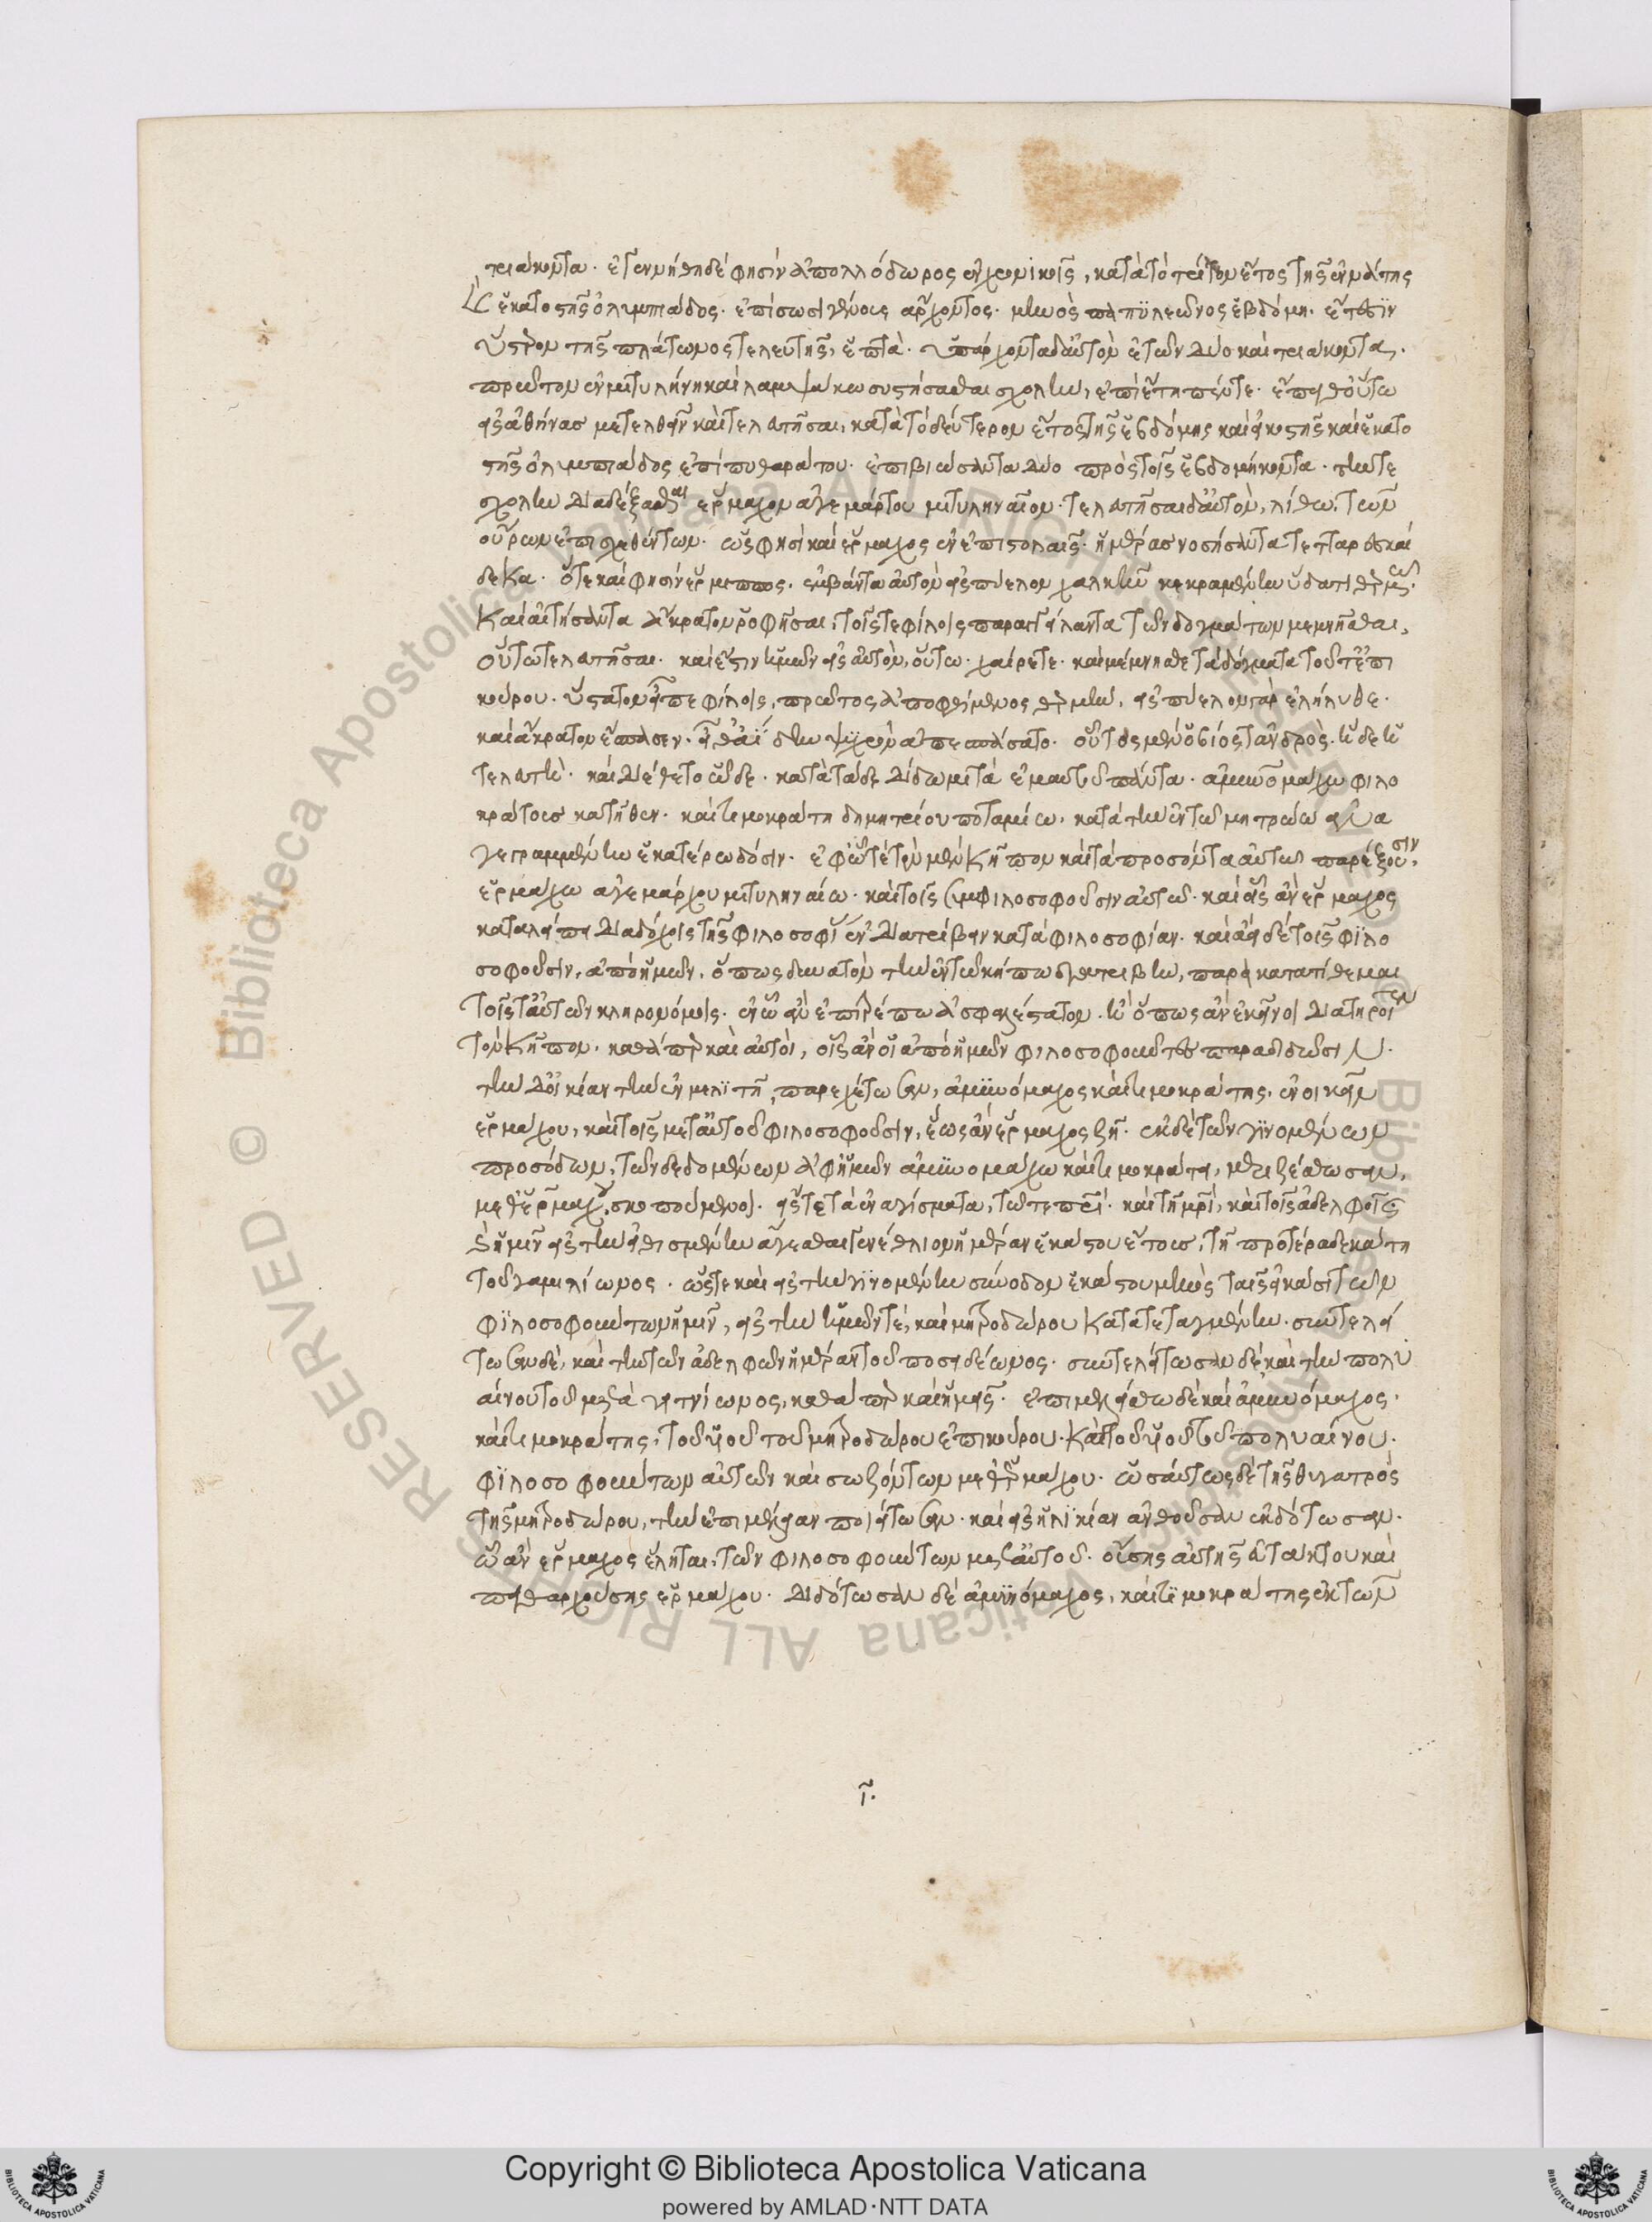 τριάκοντα. ἐγεννήθη δέ φησὶν ἀπολλόδωρος ἐν χρονικοῖς, κατὰ τὸ τρίτον ἔτος τῆς ἐννάτης
καὶ ἑκατοστῆς ὀλυμπιάδος. ἐπὶ σωσιγένους ἄρχοντος. μηνὸς πυλεῶνος ἑβδόμη. ἔτεσιν
ὕστερον τῆς πλάτωνος τελευτῆς, ἑπτά. ὑπάρχοντα δ' αὐτὸν ἐτῶν δύο καὶ τριάκοντα,
πρῶτον ἐν μιτυλήνη καὶ λαμψάκω συστήσασθαι σχολὴν, ἐπὶ ἔτη πέντε. ἔπειθ' οὕτω
εἰς ἀθήνας μετελθεῖν καὶ τελευτῆσαι, κατὰ τὸ δεύτερον ἔτος τῆς ἑβδόμης καὶ εἰκοστῆς καὶ ἑκατο
στῆς ὀλυμπιάδος ἐπὶ πυθαράτου. ἐπιβιώσαντα δύο πρὸς τοῖς ἑβδομήκοντα. τήν τε
σχολὴν διαδέξασθαι ἕρμαχον ἀγεμάρτου μιτυληναῖον. τελευτῆσαι δ' αὐτὸν, λίθω. τῶν
οὔρων ἐπισχεθέντων. ὥς φησὶ καὶ ἕρμαχος ἐν ἐπιστολαῖς. ἡμέρας νοσήσαντα τετταρεσκαί
δεκα. ὅτε καὶ φησὶν ἕρμιππος. ἐμβάντα αὐτὸν εἰς πύελον χαλκῆν κεκραμένην ὕδατι θερμῶ.
καὶ αἰτήσαντα ἄκρατον ῥοφῆσαι, τοῖς τε φίλοις παραγγείλαντα τῶν δογμάτων μεμνῆσθαι,
οὕτω τελευτῆσαι. καὶ ἔστιν ἡμῶν εἰς αὐτὸν, οὕτω. χαίρετε. καὶ μέμνησθε τὰ δόγματα τοῦτ' ἐπί
κουρου. ὕστατον εἶπε φίλοις, πρῶτος ἀποφθίμενος θερμὴν, εἰς πύελον γὰρ ἐλήλυθε.
καὶ ἄκρατον ἔσπασεν. εἶθ' ἀΐδην ψυχρὸν ἀπεσπάσατο. οὗτος μὲν ὁ βίος τἀνδρός. ἡ δὲ ἡ
τελευτή. καὶ διέθετο ὧδε. κατὰ τάδε δίδωμι τὰ ἐμαυτοῦ πάντα. ἀμυνομάχω φιλο
κράτους κατῆθεν. καὶ τιμοκράτη δημητρίου ποταμίω. κατὰ τὴν ἐν τῶ μητρώω ανα
γεγραμμένην ἑκατέρω δόσιν. ἐφ' ὧ τε τὸν μὲν κῆπον καὶ τὰ προσόντα αὐτῶ παρέξουσιν,
ἑρμάχω ἀγεμάρχου μιτυληναίω. καὶ τοῖς συμφιλοσοφοῦσιν αὐτῶ. καὶ οἷς ἂν ἕρμαχος
καταλείπη διαδόχοις τῆς φιλοσοφίας ἐνδιατρίβειν κατὰ φιλοσοφίαν. καὶ ἀεὶ δὲ τοῖς φιλο
σοφοῦσιν, ἀπὸ ἡμῶν, ὅπως δυνατὸν τὴν ἐν τῶ κήπω διατριβὴν, παρακατατίθεμαι
τοῖς τ' αὐτῶν κληρονόμοις. ἐν ὧ ἂν ἐπιτρέπω ἀσφαλέστατον. ἢ ὅπως ἂν ἐκεῖνοι διατηροί
τὸν κῆπον. καθάπερ καὶ αὐτοὶ, οἷς ἂν οἱ ἀπὸ ἡμῶν φιλοσοφοῦντες παραδιδῶσιν.
τὴν δ' οἰκίαν τὴν ἐν μελίτη, παρεχέτωσαν, ἀμυνόμαχος καὶ τιμοκράτης. ἐνοικεῖν
ἑρμάχου, καὶ τοῖς μετ' αὐτοῦ φιλοσοφοῦσιν, ἕως ἂν ἕρμαχος ζῆ. ἐκ δὲ τῶν γινομένων
προσόδων, τῶν δεδομένων ἀφ' ἡμῶν ἀμυνομάχω καὶ τιμοκράτει, μεριζέσθωσαν,
μεθ' ἑρμάχου σκοπούμενοι. εἴς τε τὰ ἐναγίσματα, τῶ τε πατρί. καὶ τῆ μητρί, καὶ τοῖς ἀδελφοῖς
καὶ ἡμῖν εἰς τὴν εἰθισμένην ἄγεσθαι γενέθλιον ἡμέραν ἑκάστου ἔτους, τῆ προτέρα δεκάτη
τοῦ γαμηλίωνος. ὥστε καὶ εἰς τὴν γινομένην σύνοδον ἑκάστου μηνὸς ταῖς εἰκάσι τῶν
φιλοσοφούντων ἡμῖν, εἰς τὴν ἡμῶν τε, καὶ μητροδώρου κατατεταγμένην. συντελεί
τωσαν δὲ, καὶ τὴν τῶν ἀδελφῶν ἡμέραν τοῦ ποσειδεῶνος. συντελείτωσαν δὲ καὶ τὴν πολυ
αίνου τοῦ μεταγειτνίωνος, καθάπερ καὶ ἡμεῖς. ἐπιμελείσθω δὲ καὶ ἀμυνόμαχος.
καὶ τιμοκράτης, τοῦ υἱοῦ τοῦ μητροδώρου ἐπικούρου. καὶ τοῦ υἱοῦ τοῦ πολυαίνου.
φιλοσοφούντων αὐτῶν καὶ συζώντων μεθ' ἑρμάχου. ὡσαύτως δὲ τῆς θυγατρὸς
τῆς μητροδώρου, τὴν ἐπιμέλειαν ποιείτωσαν. καὶ εἰς ἡλικίαν ἀνθοῦσαν ἐκδότωσαν.
ὧ ἂν ἕρμαχος ἕληται, τῶν φιλοσοφούντων μετ' αὐτοῦ. οὔσης αὐτῆς εὐτάκτου καὶ
πειθαρχούσης ἑρμάχου. διδότωσαν δὲ ἀμυνόμαχος, καὶ τιμοκράτης ἐκ τῶν